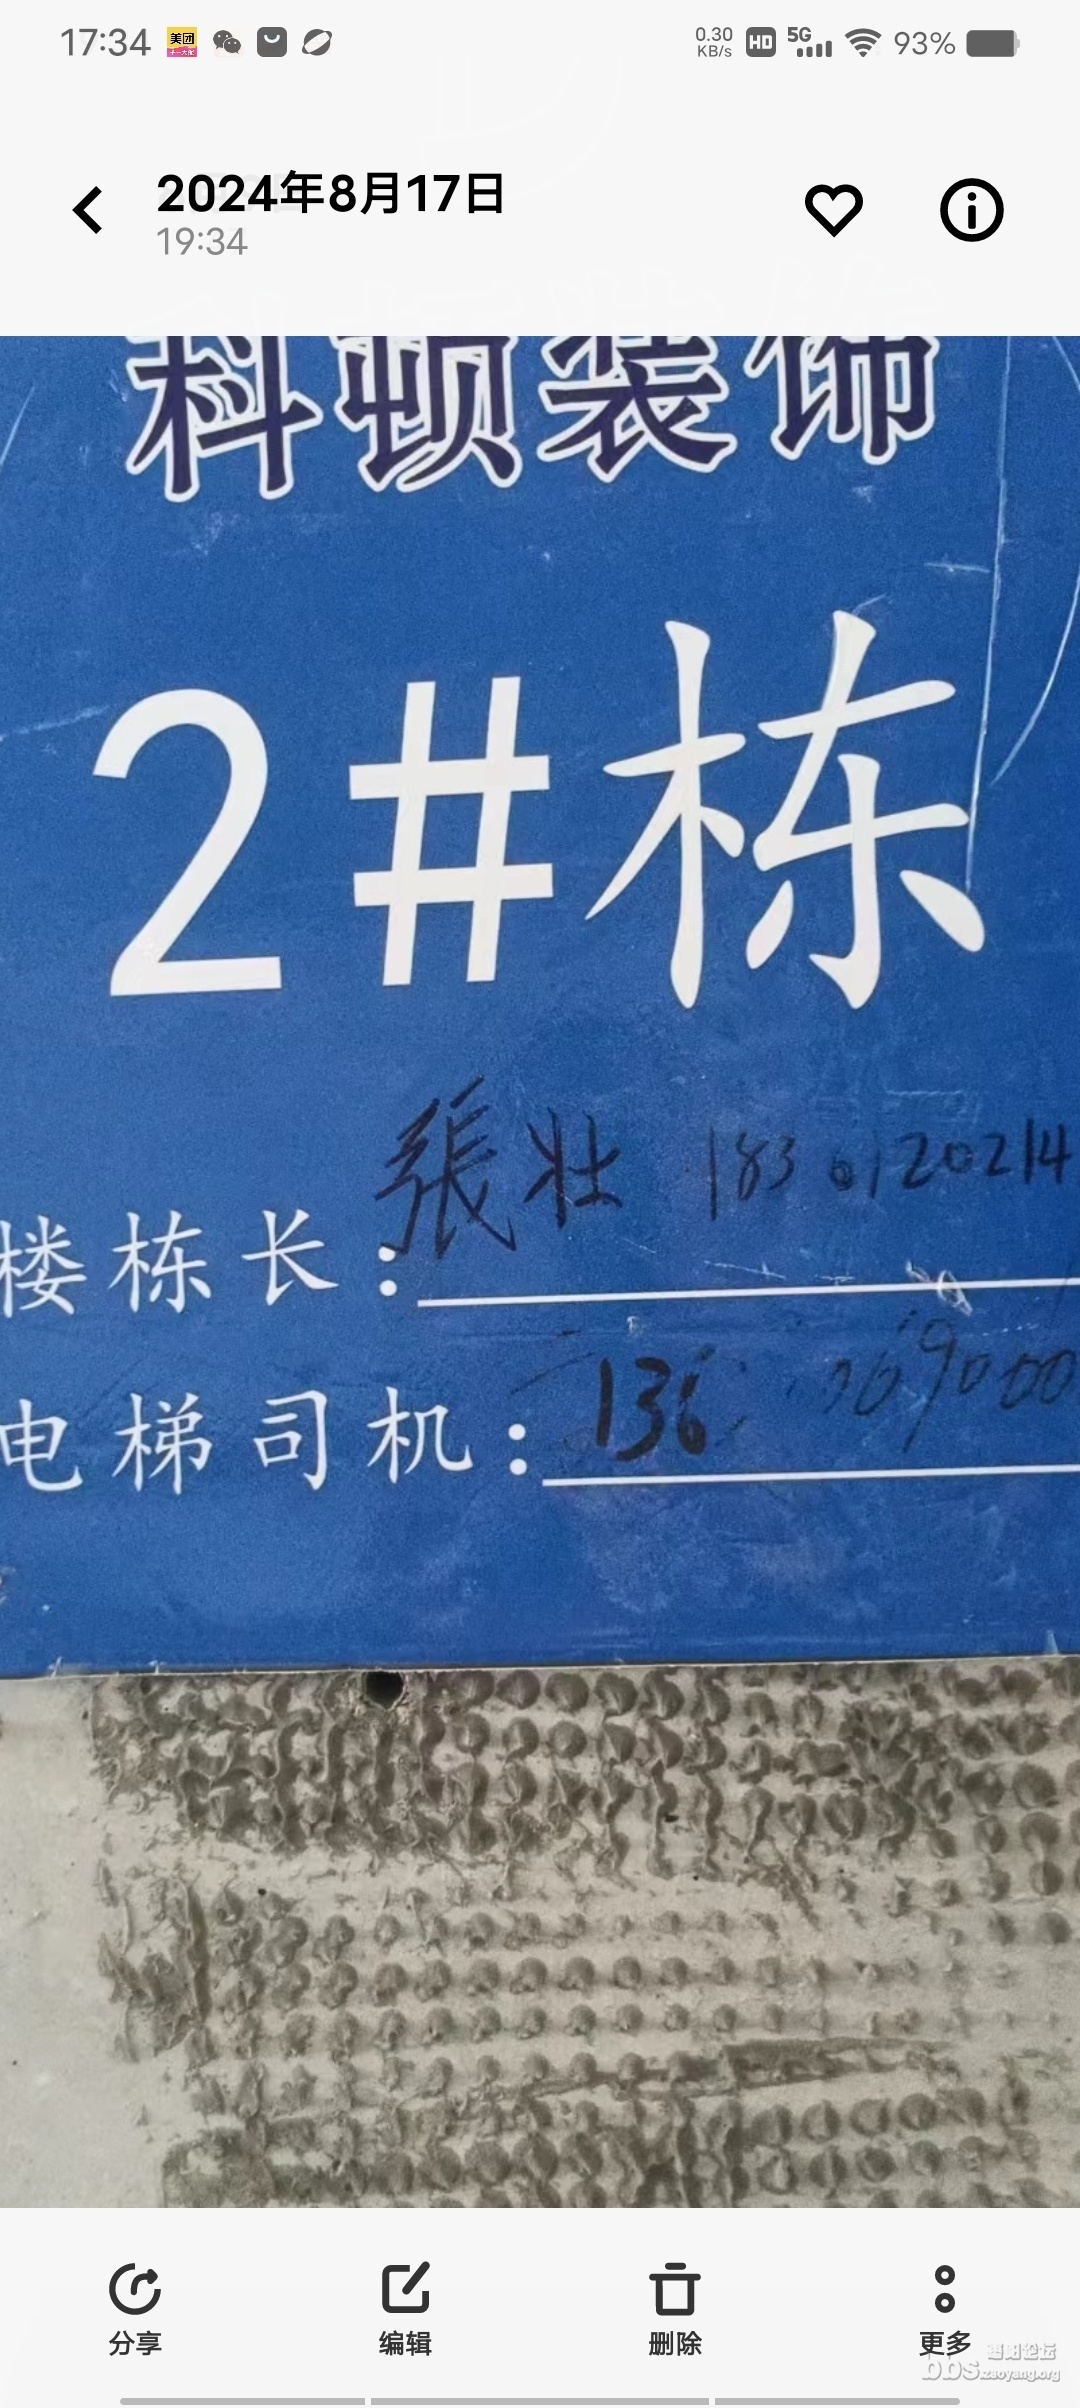 17:34
美团
0.30 KB/s HD 5G 93%
2024年8月17日
19:34
科顿装饰
2#栋
張壮 1830120214
楼栋长:
136 9000
电梯司机:
分享 编辑 删除 更多
枣阳论坛
bbs.zaoyang.org